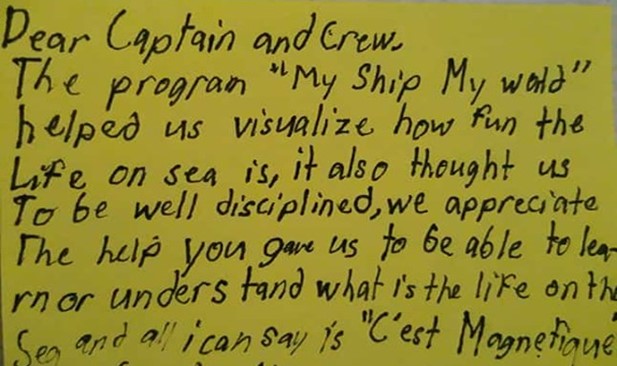 Dear Captain and Crew.
The program "My Ship My world"
helped us visualize how fun the
Life on sea is, it also thought us
To be well disciplined, we appreciate
The help you gave us to be able to lea
rn or understand what is the life on the
Sea and all i can say is "C'est Magnefique"